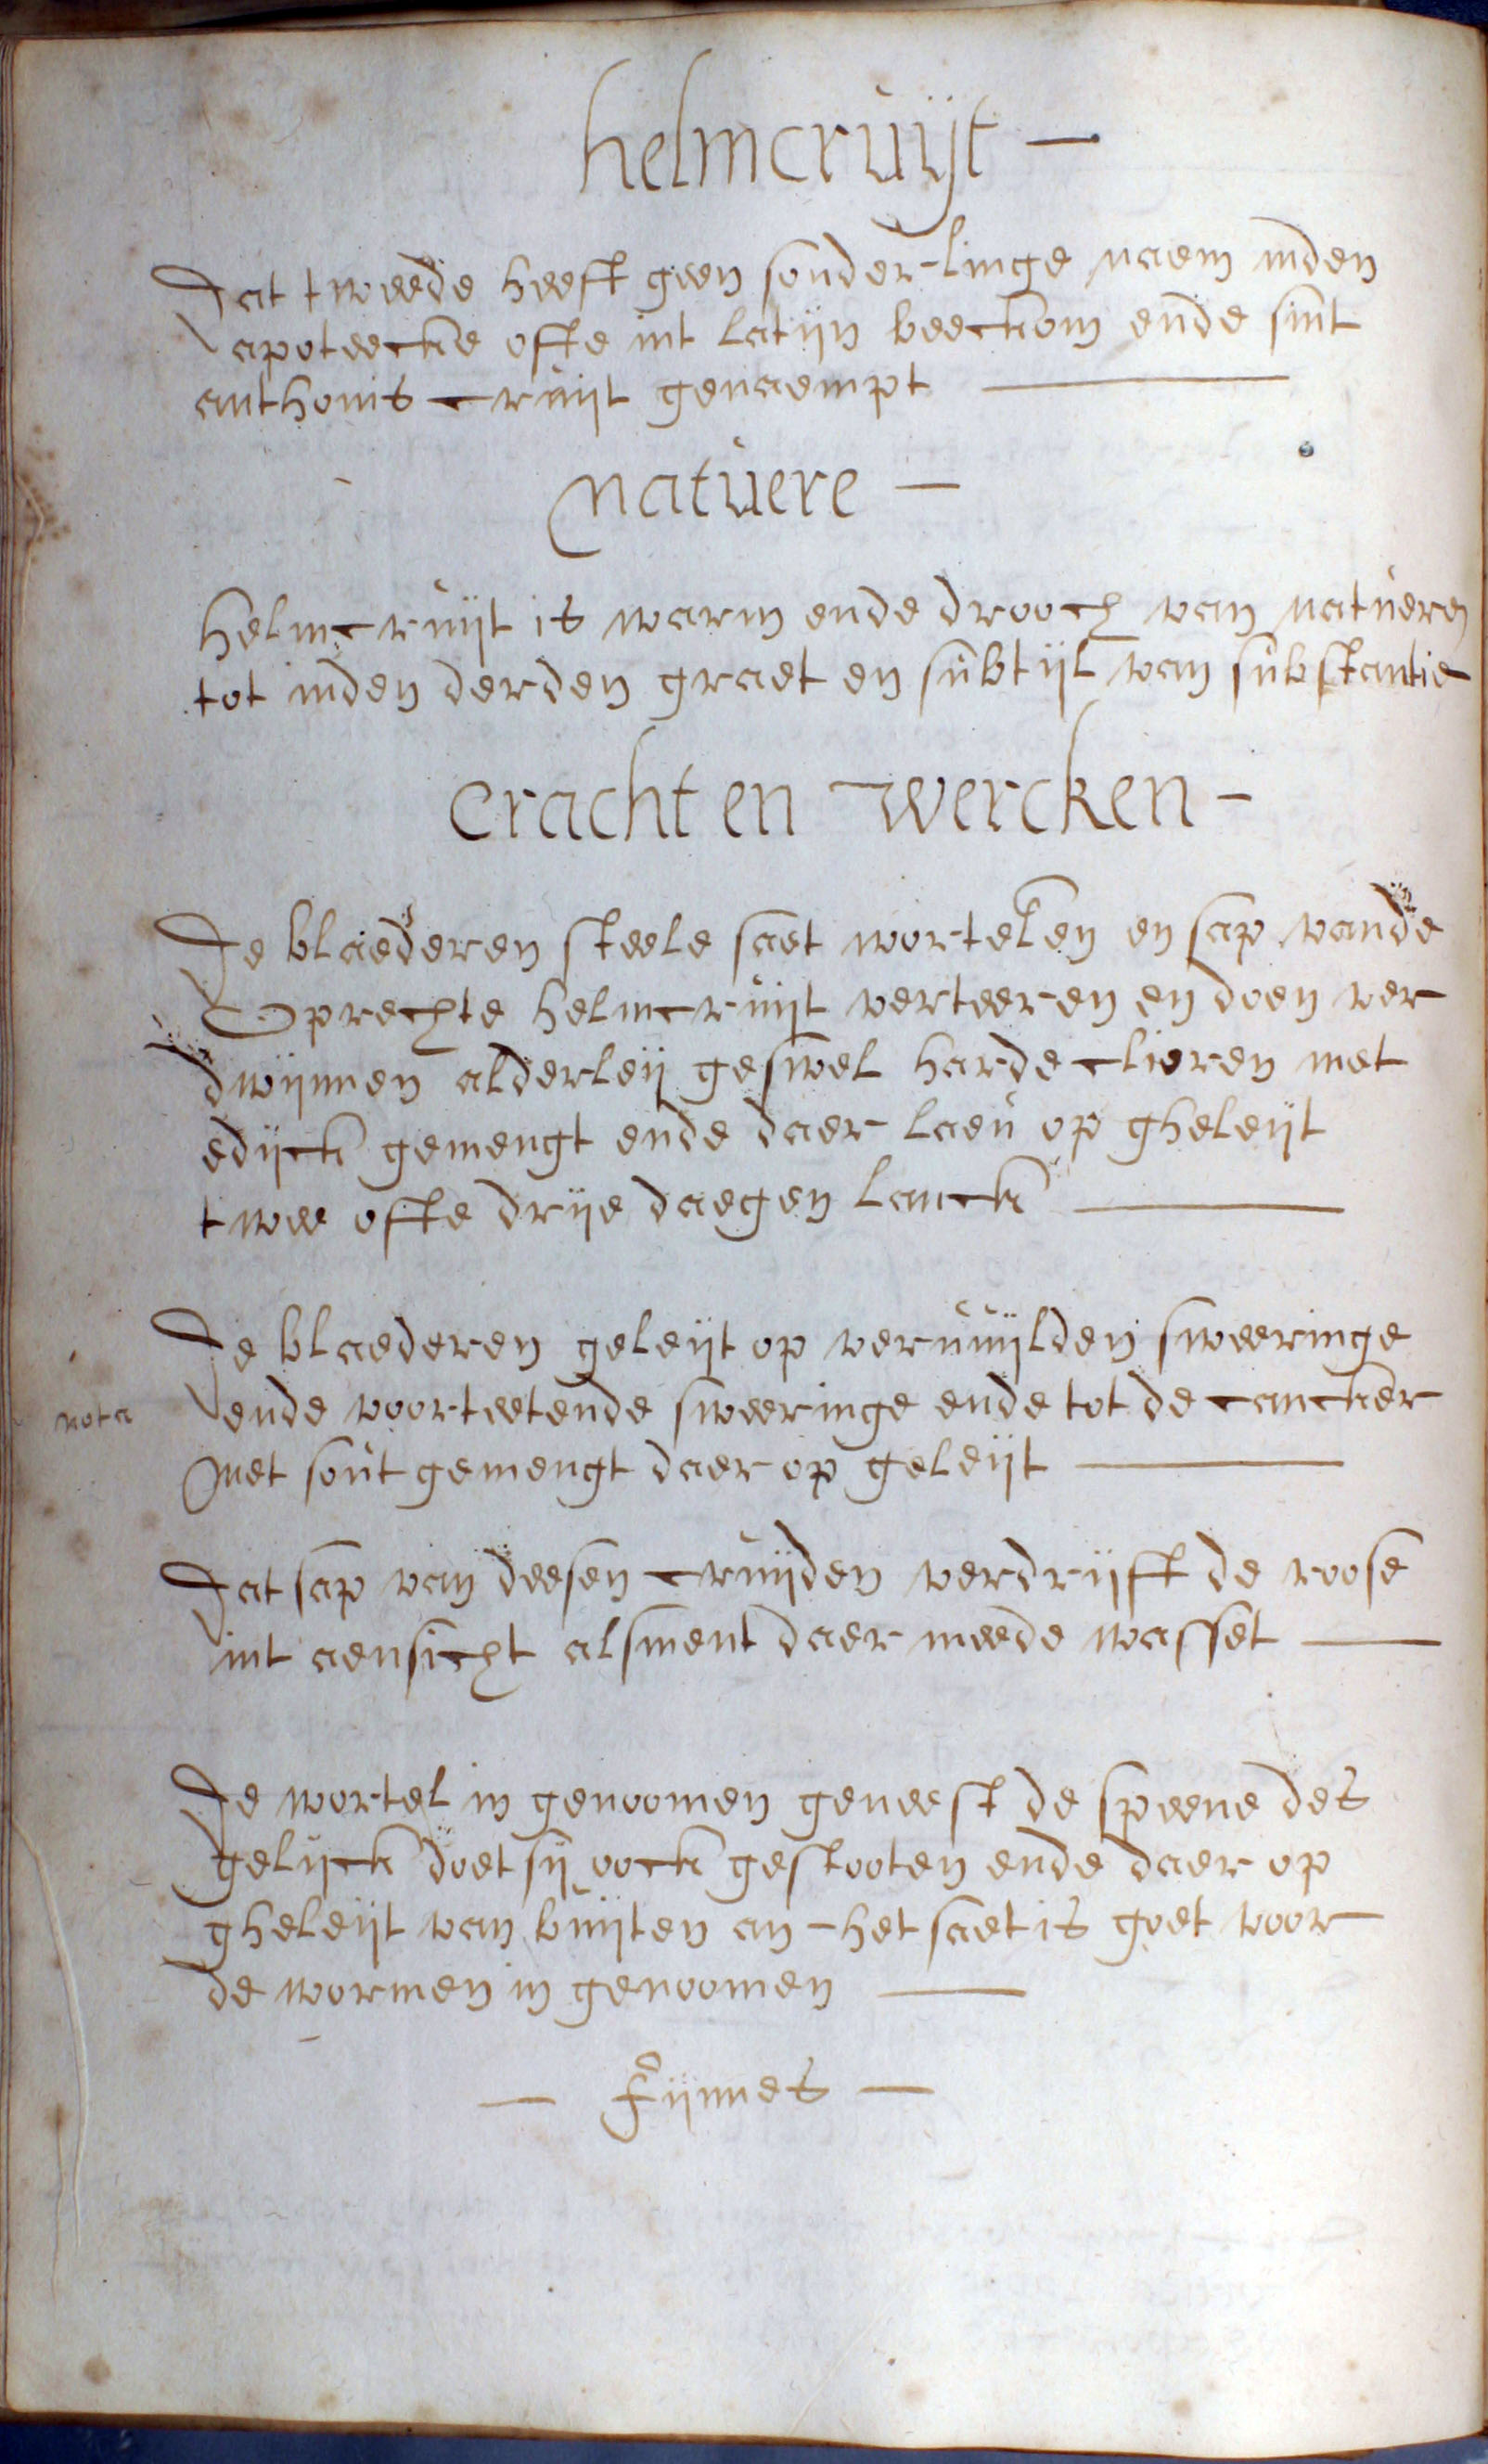 helmcruijt —
Dat tweede heeft geen sonderlinge naem inden
apoteecke ofte int latijn beeckom ende sint
anthonis cruijt genaempt —
Natuere —
helmcruijt is warm ende drooch van natueren
tot inden derden graet en subtijl van substantie
cracht en wercken —
De blaederen steele saet wortelen en sap vande
Oprechte helmcruijt verteeren en doen ver
dwijnnen alderleij geswel harde clieren met
edijck gemengt ende daer laeu op gheleijt
twee ofte drije daegen lanck —
De blaederen geleijt op veruuijlden sweeringe
nota ende voorteetende sweeringe ende tot de cancker
Met sout gemengt daer op geleijt —
Dat sap van deesen cruijden verdrijft de roose
int aensicht alsment daer meede wasset —
De wortel in genoomen geneest de speene des
gelijck doet sij oock gestooten ende daer op
gheleijt van buijten an – het saet is goet voor
de wormen in genoomen —
— Fijnnes —